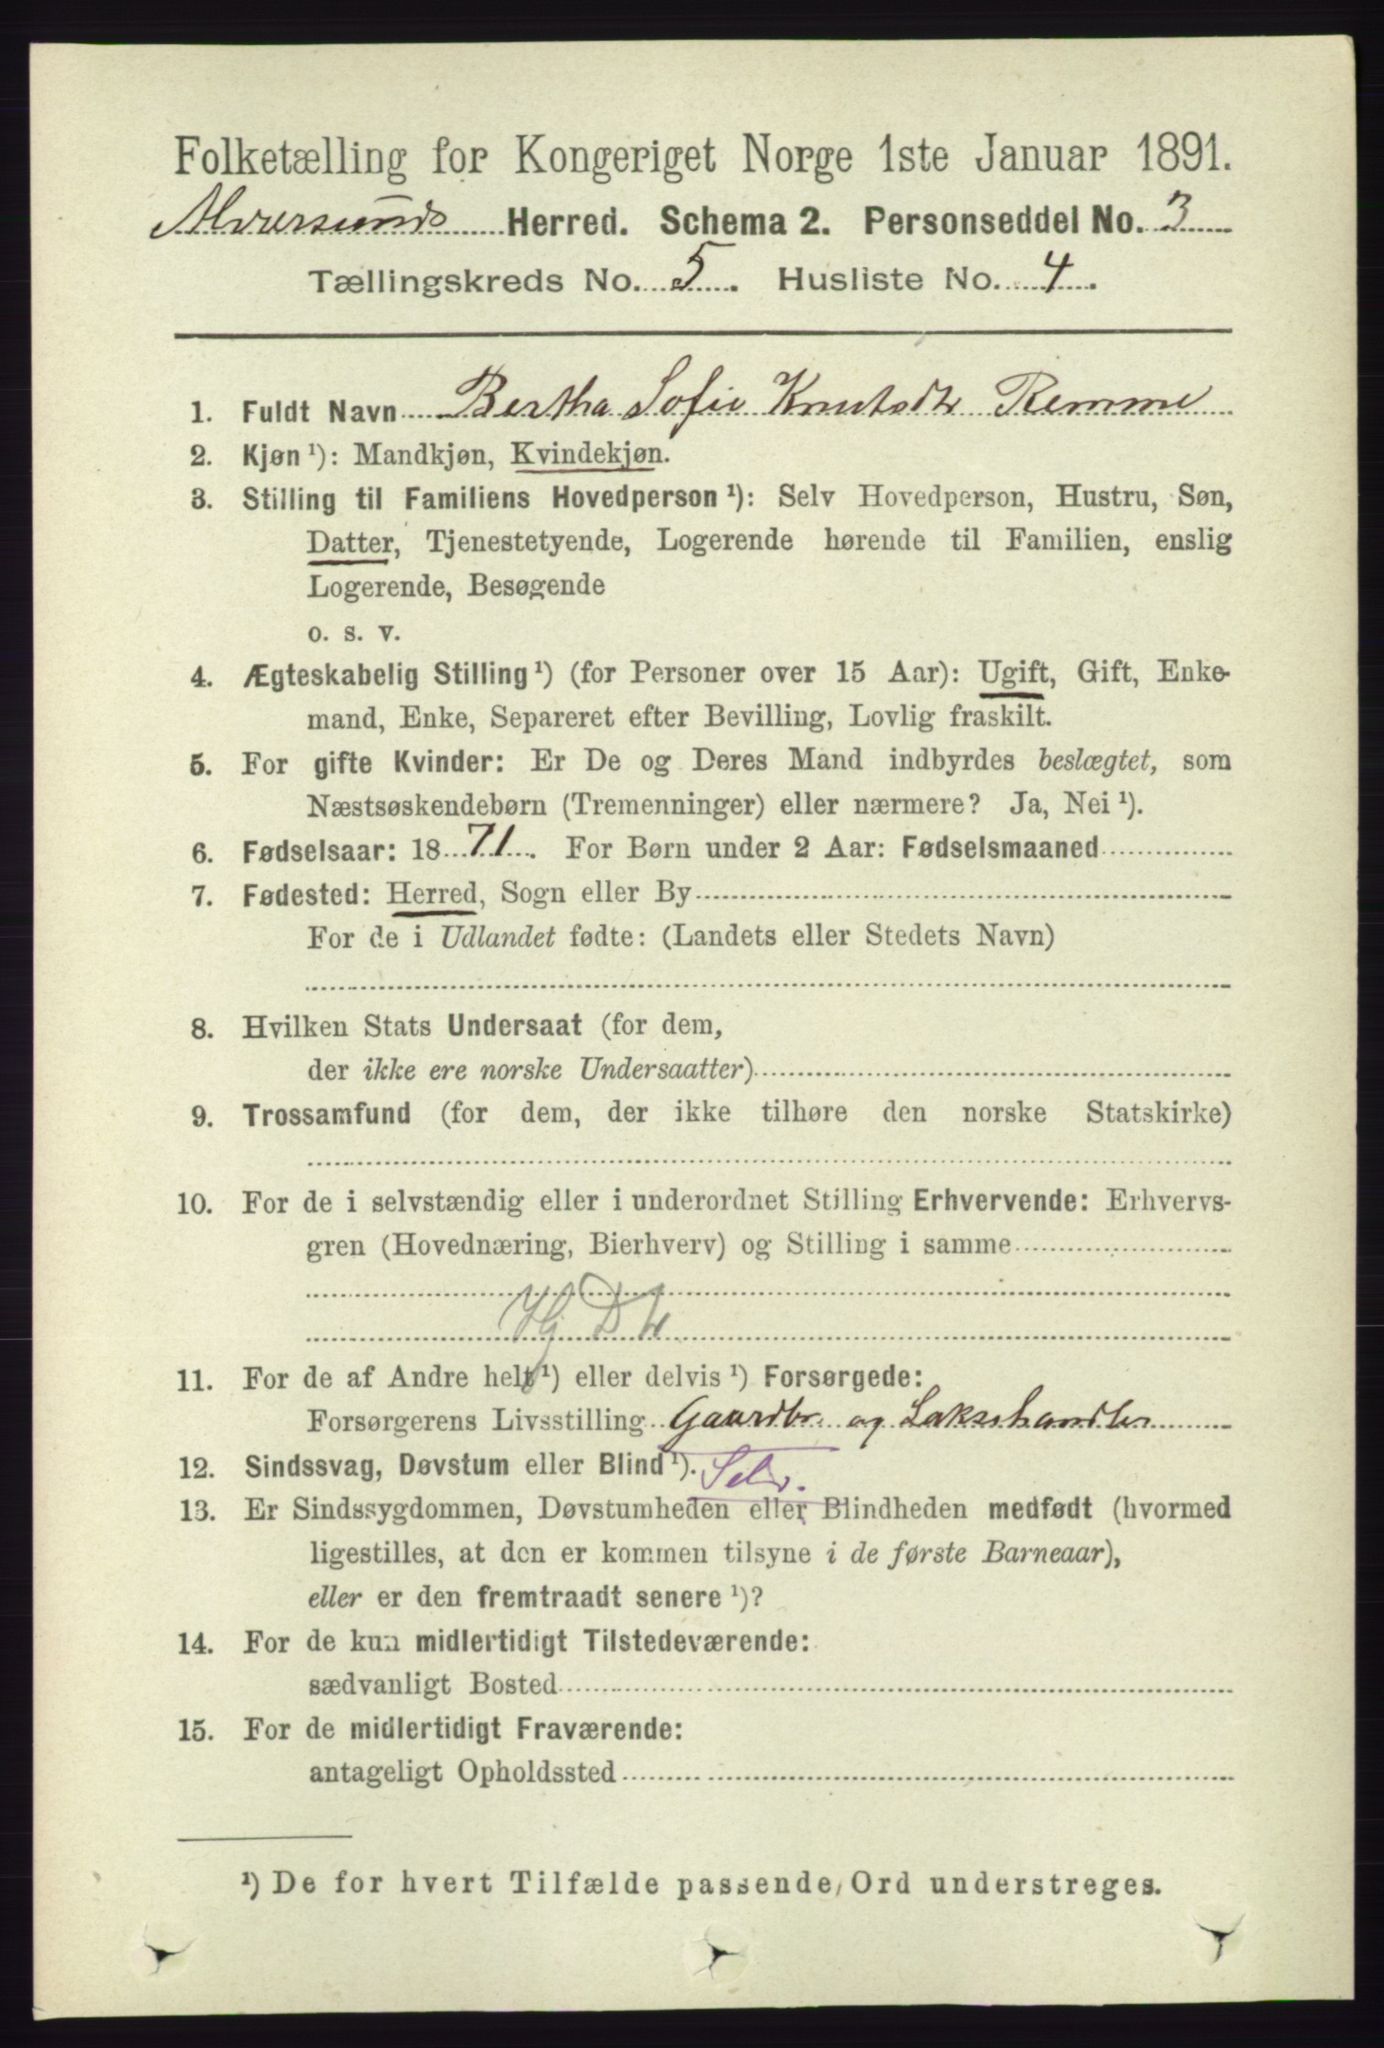 Folketælling for Kongeriget Norge 1ste Januar 1891.
Alversunds Herred. Schema 2. Personseddel No. 3
Tællingskreds No. 5. Husliste No. 4.
1. Fuldt Navn Bertha Sofie Knutsdtr Remme
2. Kjøn ¹): Mandkjøn, Kvindekjøn.
3. Stilling til Familiens Hovedperson ¹): Selv Hovedperson, Hustru, Søn,
Datter, Tjenestetyende, Logerende hørende til Familien, enslig
Logerende, Besøgende
o. s. v.
4. Ægteskabelig Stilling ¹) (for Personer over 15 Aar): Ugift, Gift, Enke-
mand, Enke, Separeret efter Bevilling, Lovlig fraskilt.
5. For gifte Kvinder: Er De og Deres Mand indbyrdes beslægtet, som
Næstsøskendebørn (Tremenninger) eller nærmere? Ja, Nei ¹).
6. Fødselsaar: 1871. For Børn under 2 Aar: Fødselsmaaned
7. Fødested: Herred, Sogn eller By
For de i Udlandet fødte: (Landets eller Stedets Navn)
8. Hvilken Stats Undersaat (for dem,
der ikke ere norske Undersaatter)
9. Trossamfund (for dem, der ikke tilhøre den norske Statskirke)
10. For de i selvstændig eller i underordnet Stilling Erhvervende: Erhvervs-
gren (Hovednæring, Bierhverv) og Stilling i samme
Hj Dtr
11. For de af Andre helt ¹) eller delvis ¹) Forsørgede:
Forsørgerens Livsstilling Gaardbr. og Laksehandler
12. Sindssvag, Døvstum eller Blind ¹). Selv.
13. Er Sindssygdommen, Døvstumheden eller Blindheden medfødt (hvormed
ligestilles, at den er kommen tilsyne i de første Barneaar),
eller er den fremtraadt senere ¹)?
14. For de kun midlertidigt Tilstedeværende:
sædvanligt Bosted
15. For de midlertidigt Fraværende:
antageligt Opholdssted
¹) De for hvert Tilfælde passende Ord understreges.